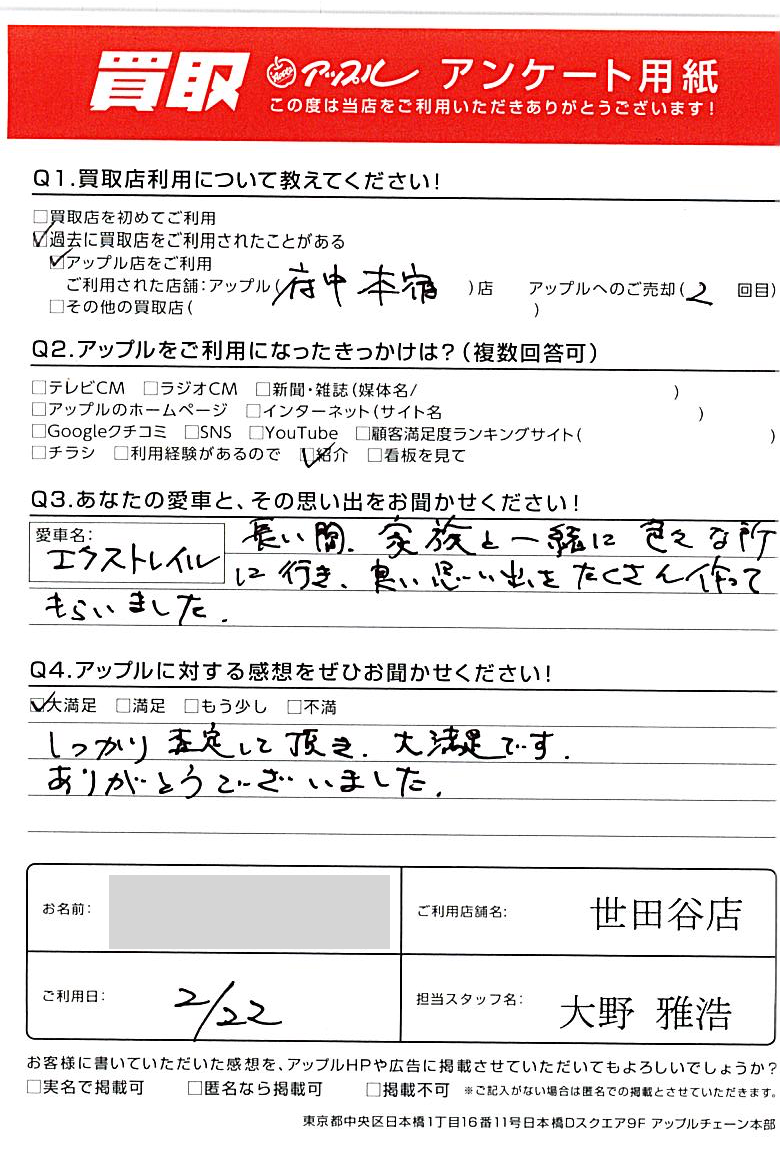 買取 アップル アンケート用紙
この度は当店をご利用いただきありがとうございます!
Q1.買取店利用について教えてください!
□買取店を初めてご利用
☑過去に買取店をご利用されたことがある
☑アップル店をご利用
ご利用された店舗:アップル(府中本宿)店 アップルへのご売却(2回目)
□その他の買取店( )
Q2.アップルをご利用になったきっかけは?(複数回答可)
□テレビCM □ラジオCM □新聞・雑誌(媒体名/ )
□アップルのホームページ □インターネット(サイト名 )
□Googleクチコミ □SNS □YouTube □顧客満足度ランキングサイト( )
□チラシ □利用経験があるので ☑紹介 □看板を見て
Q3.あなたの愛車と、その思い出をお聞かせください!
愛車名:
エクストレイル 長い間、家族と一緒に色々な所
に行き、良い思い出をたくさん作って
もらいました。
Q4.アップルに対する感想をぜひお聞かせください!
☑大満足 □満足 □もう少し □不満
しっかり査定して頂き、大満足です。
ありがとうございました。
お名前: ご利用店舗名: 世田谷店
ご利用日: 2/22 担当スタッフ名: 大野 雅浩
お客様に書いていただいた感想を、アップルHPや広告に掲載させていただいてもよろしいでしょうか?
□実名で掲載可 □匿名なら掲載可 □掲載不可 ※ご記入がない場合は匿名での掲載とさせていただきます。
東京都中央区日本橋1丁目16番11号日本橋Dスクエア9F アップルチェーン本部